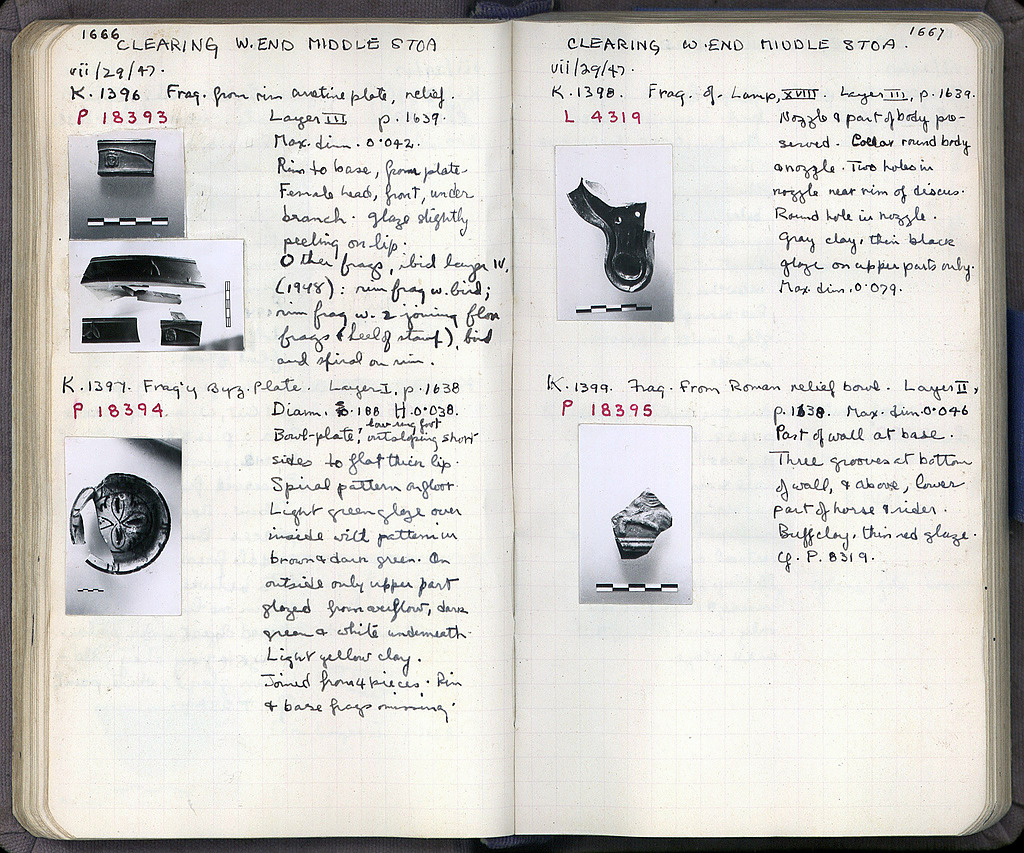 1666
CLEARING W. END MIDDLE STOA
vii/29/47.
K. 1396 Frag. from rim arretine plate, relief.
P 18393
Layer III p. 1639.
Max. dim. 0.042.
Rim to base, from plate.
Female head, front, under
branch. glaze slightly
peeling on lip.
Other frags, ibid layer IV,
(1948): rim frag w. bird;
rim frag w. 2 joining floor
frags (heel of stamp), bird
and spiral on rim.
K. 1397. Frag'y Byz. Plate. Layer I, p. 1638
P 18394
Diam. 0.188 H. 0.038.
Bowl-plate, low ring foot, outsloping short
sides to flat thick lip.
Spiral pattern on floor.
Light green glaze over
inside with pattern in
brown & dark green. On
outside only upper part
glazed from overflow, dark
green & white underneath.
Light yellow clay.
Joined from 4 pieces. Rim
& base frags missing.
1667
CLEARING W. END MIDDLE STOA.
vii/29/47.
K. 1398. Frag. of Lamp, XVIII. Layer III, p. 1639.
L 4319
Nozzle & part of body pre-
served. Collar round body
& nozzle. Two holes in
nozzle near rim of discus.
Round hole in nozzle.
Gray clay, thin black
glaze on upper parts only.
Max. dim. 0.079.
K. 1399. Frag. from Roman relief bowl. Layer II,
P 18395
p. 1638. Max. dim. 0.046
Part of wall at base.
Three grooves at bottom
of wall, & above, lower
part of horse & rider.
Buff clay, thin red glaze.
Cf. P. 8319.